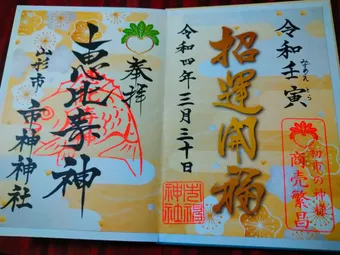 令和壬寅
みずのえ
とら
初市の神様
商売繁昌
招運開福
令和四年三月三十日
奉拝
恵比寿神
山形市
市神神社